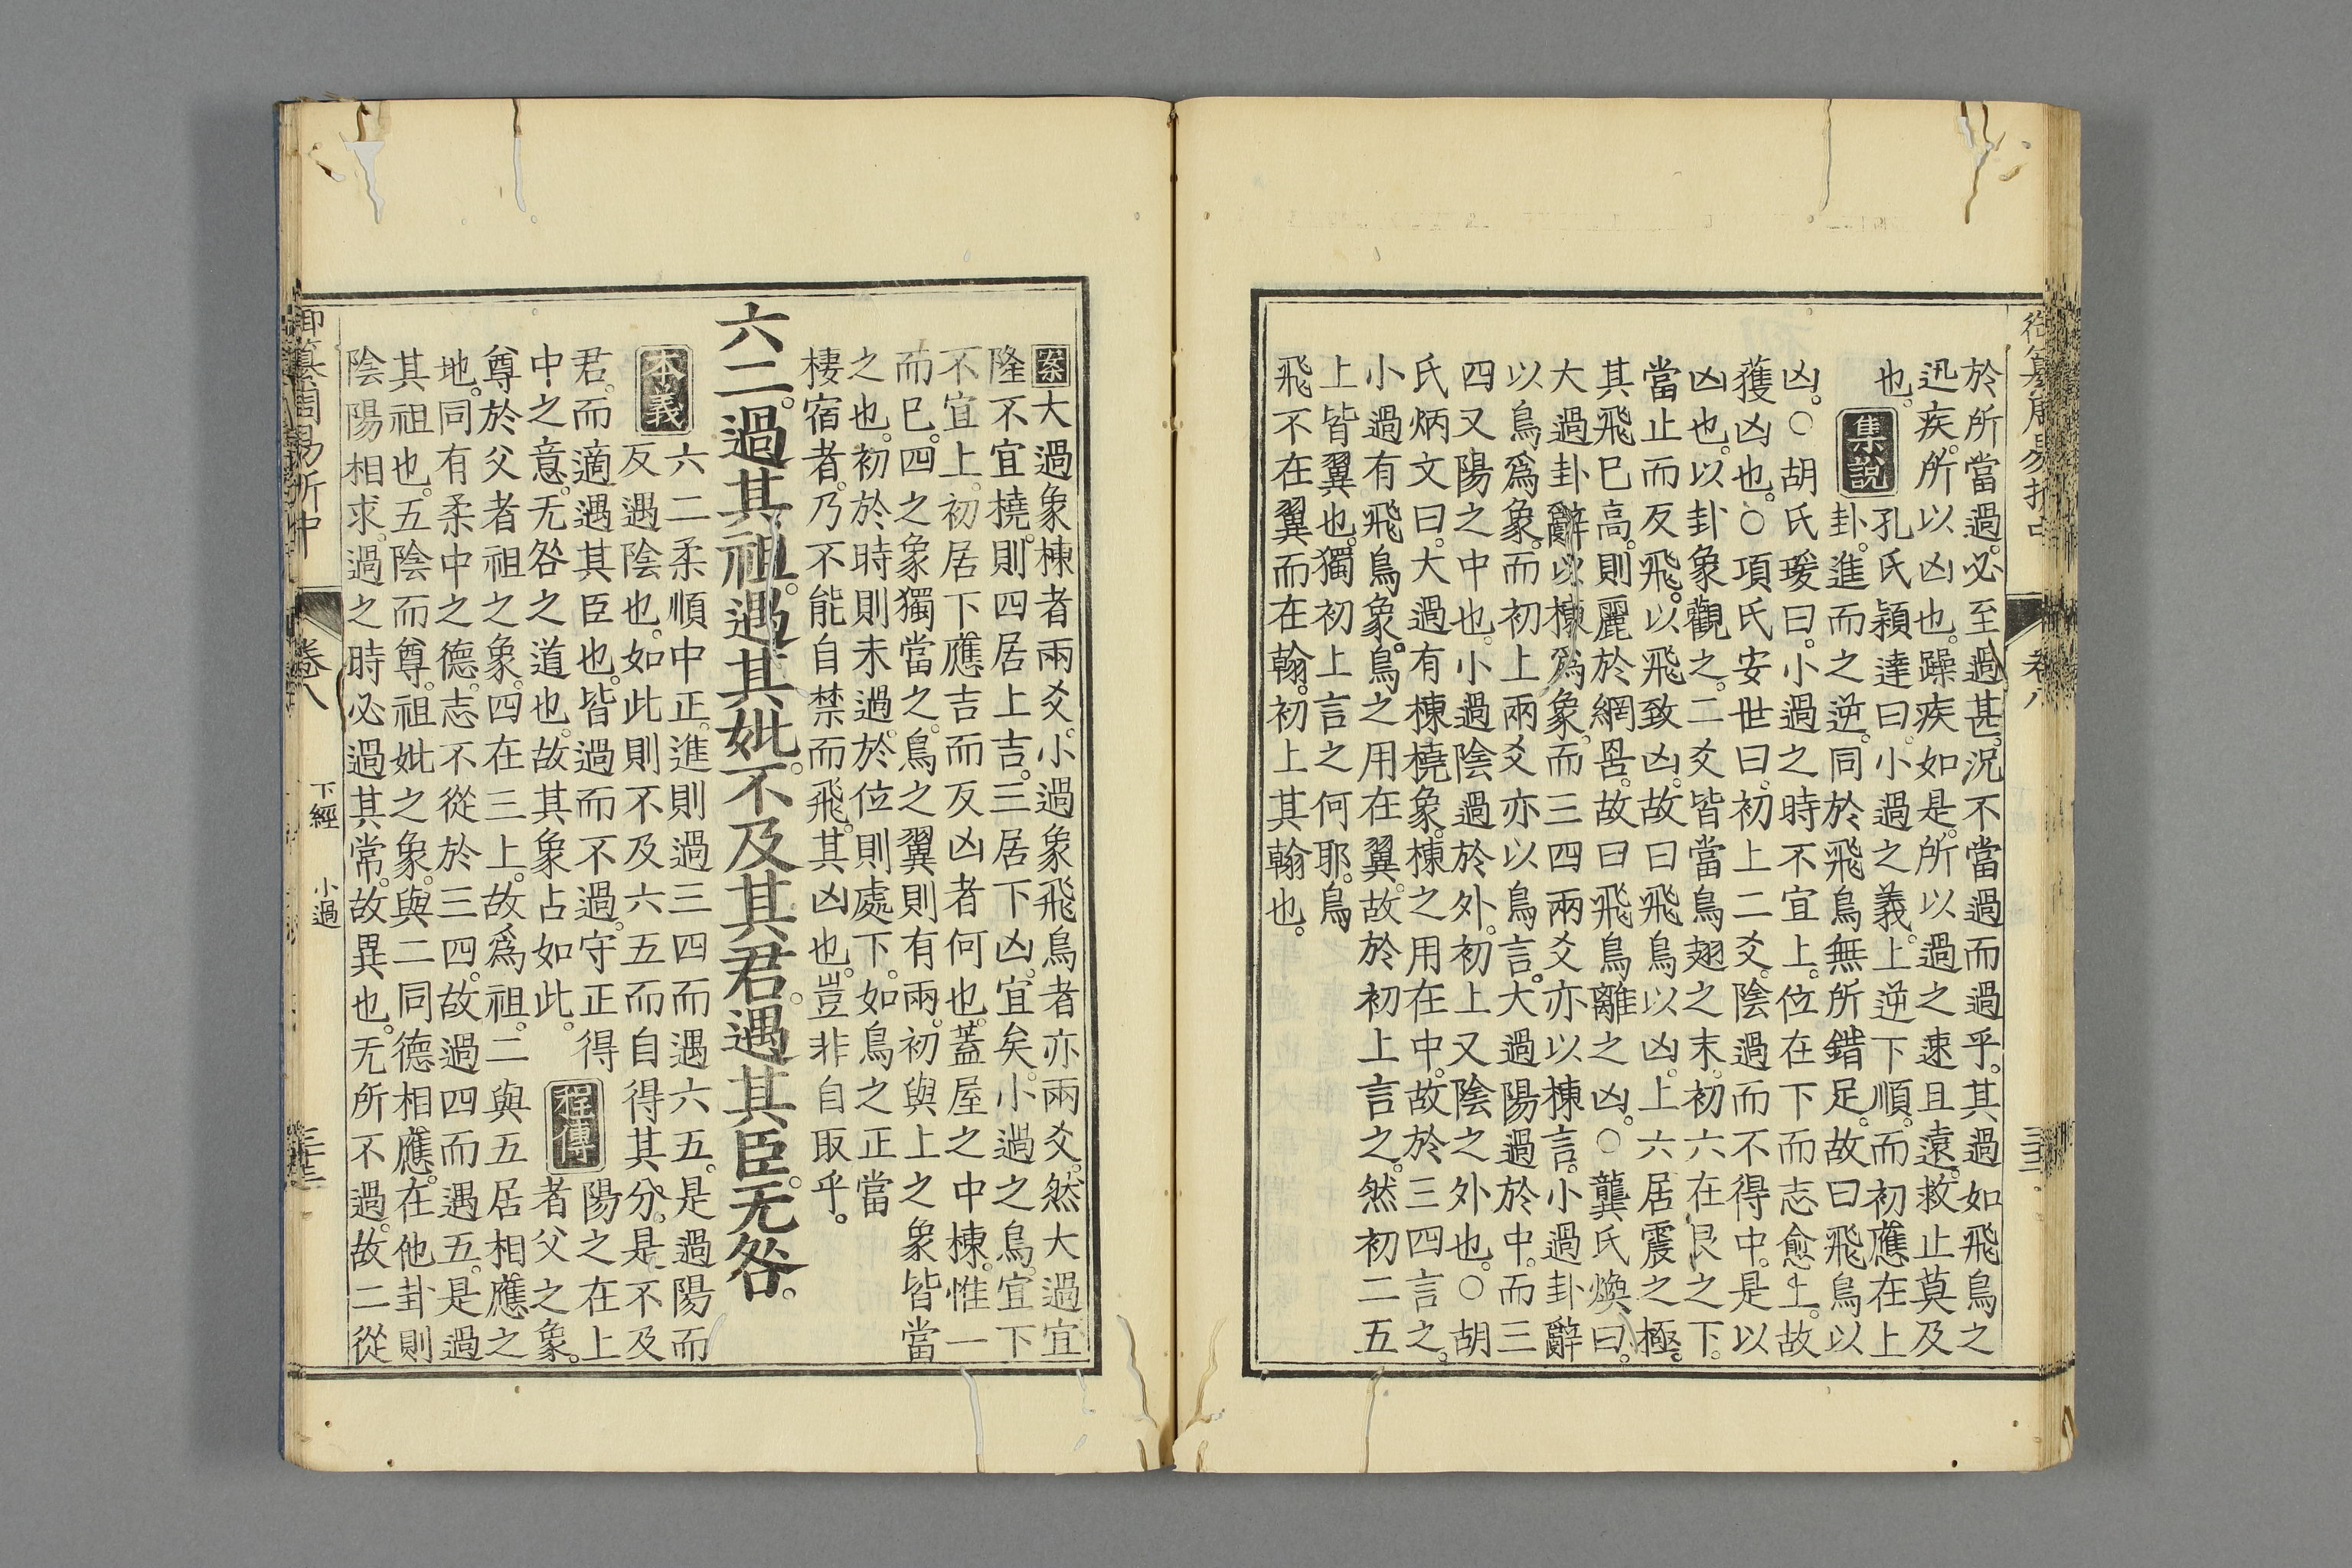 於所當過。必至過甚。況不當過而過乎。其過如飛鳥之
迅疾。所以凶也。躁疾如是。所以過之速且遠。救止莫及
也。集說孔氏穎達曰。小過之義。上逆下順。而初應在上
卦。進而之逆。同於飛鳥無所錯足。故曰飛鳥以
凶。○胡氏瑗曰。小過之時不宜上。位在下而志愈上。故
獲凶也。○項氏安世曰。初上二爻。陰過而不得中。是以
凶也。以卦象觀之。二爻皆當鳥翅之末。初六在艮之下。
當止而反飛。以飛致凶。故曰飛鳥以凶。上六居震之極。
其飛已高。則麗於網罟。故曰飛鳥離之凶。○龔氏煥曰。
大過卦辭以棟爲象。而三四兩爻亦以棟言。小過卦辭
以鳥爲象。而初上兩爻亦以鳥言。大過陽過於中。而三
四又陽之中也。小過陰過於外。初上又陰之外也。○胡
氏炳文曰。大過有棟橈象。棟之用在中。故於三四言之。
小過有飛鳥象。鳥之用在翼。故於初上言之。然初二五
上皆翼也。獨初上言之何耶。鳥
飛不在翼而在翰。初上其翰也。
御纂周易折中
卷八
案大過象棟者兩爻。小過象飛鳥者亦兩爻。然大過宜
隆不宜橈。則四居上吉。三居下凶。宜矣。小過之鳥。宜下
不宜上。初居下應吉而反凶者何也。蓋屋之中棟。惟一
而已。四之象獨當之。鳥之翼則有兩。初與上之象皆當
之也。初於時則未過。於位則處下。如鳥之正當
棲宿者。乃不能自禁而飛。其凶也。豈非自取乎。
六二。過其祖。遇其妣。不及其君。遇其臣。无咎。
本義六二柔順中正。進則過三四而遇六五。是過陽而
反遇陰也。如此則不及六五而自得其分。是不及
君。而適遇其臣也。皆過而不過。守正得
中之意。无咎之道也。故其象占如此。程傳陽之在上
者父之象。
尊於父者祖之象。四在三上。故爲祖。二與五居相應之
地。同有柔中之德。志不從於三四。故過四而遇五。是過
其祖也。五陰而尊。祖妣之象。與二同德相應。在他卦則
陰陽相求。過之時必過其常。故異也。无所不過。故二從
御纂周易折中
卷八
下經
小過